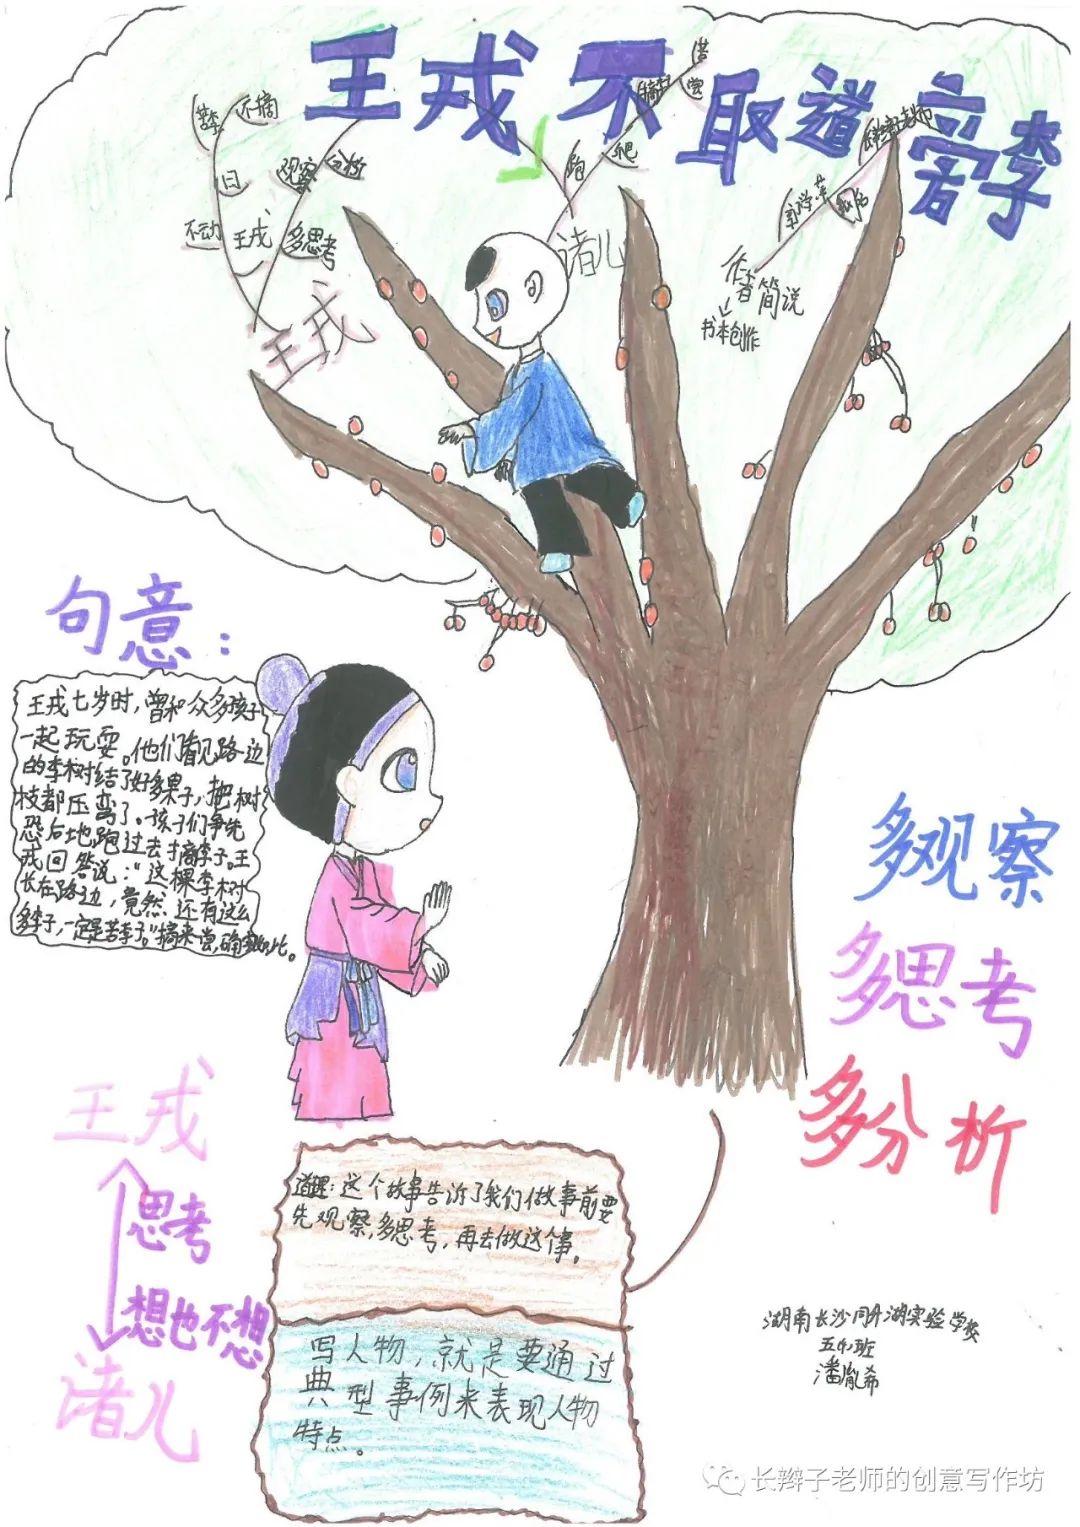 王戎不取道旁李
苦李
不摘
曰
观察
分析
不动
王戎
多思考
王戎
摘李
尝
跑
爬
诸儿
作者简说
书本创作
句意：
王戎七岁时，曾和众多孩子
一起玩耍。他们看见路边
的李树结了好多果子，把树
枝都压弯了。孩子们争先
恐后地跑过去摘李子。王
戎回答说：“这棵李树
长在路边，竟然还有这么
多李子，一定是苦李子。”摘来尝，确实如此。
多观察
多思考
多分析
王戎
思考
想也不想
诸儿
道理：这个故事告诉了我们做事前要
先观察，多思考，再去做这个事。
写人物，就是要通过
典型事例来表现人物
特点。
湖南长沙同升湖实验学校
潘胤希
长辫子老师的创意写作坊